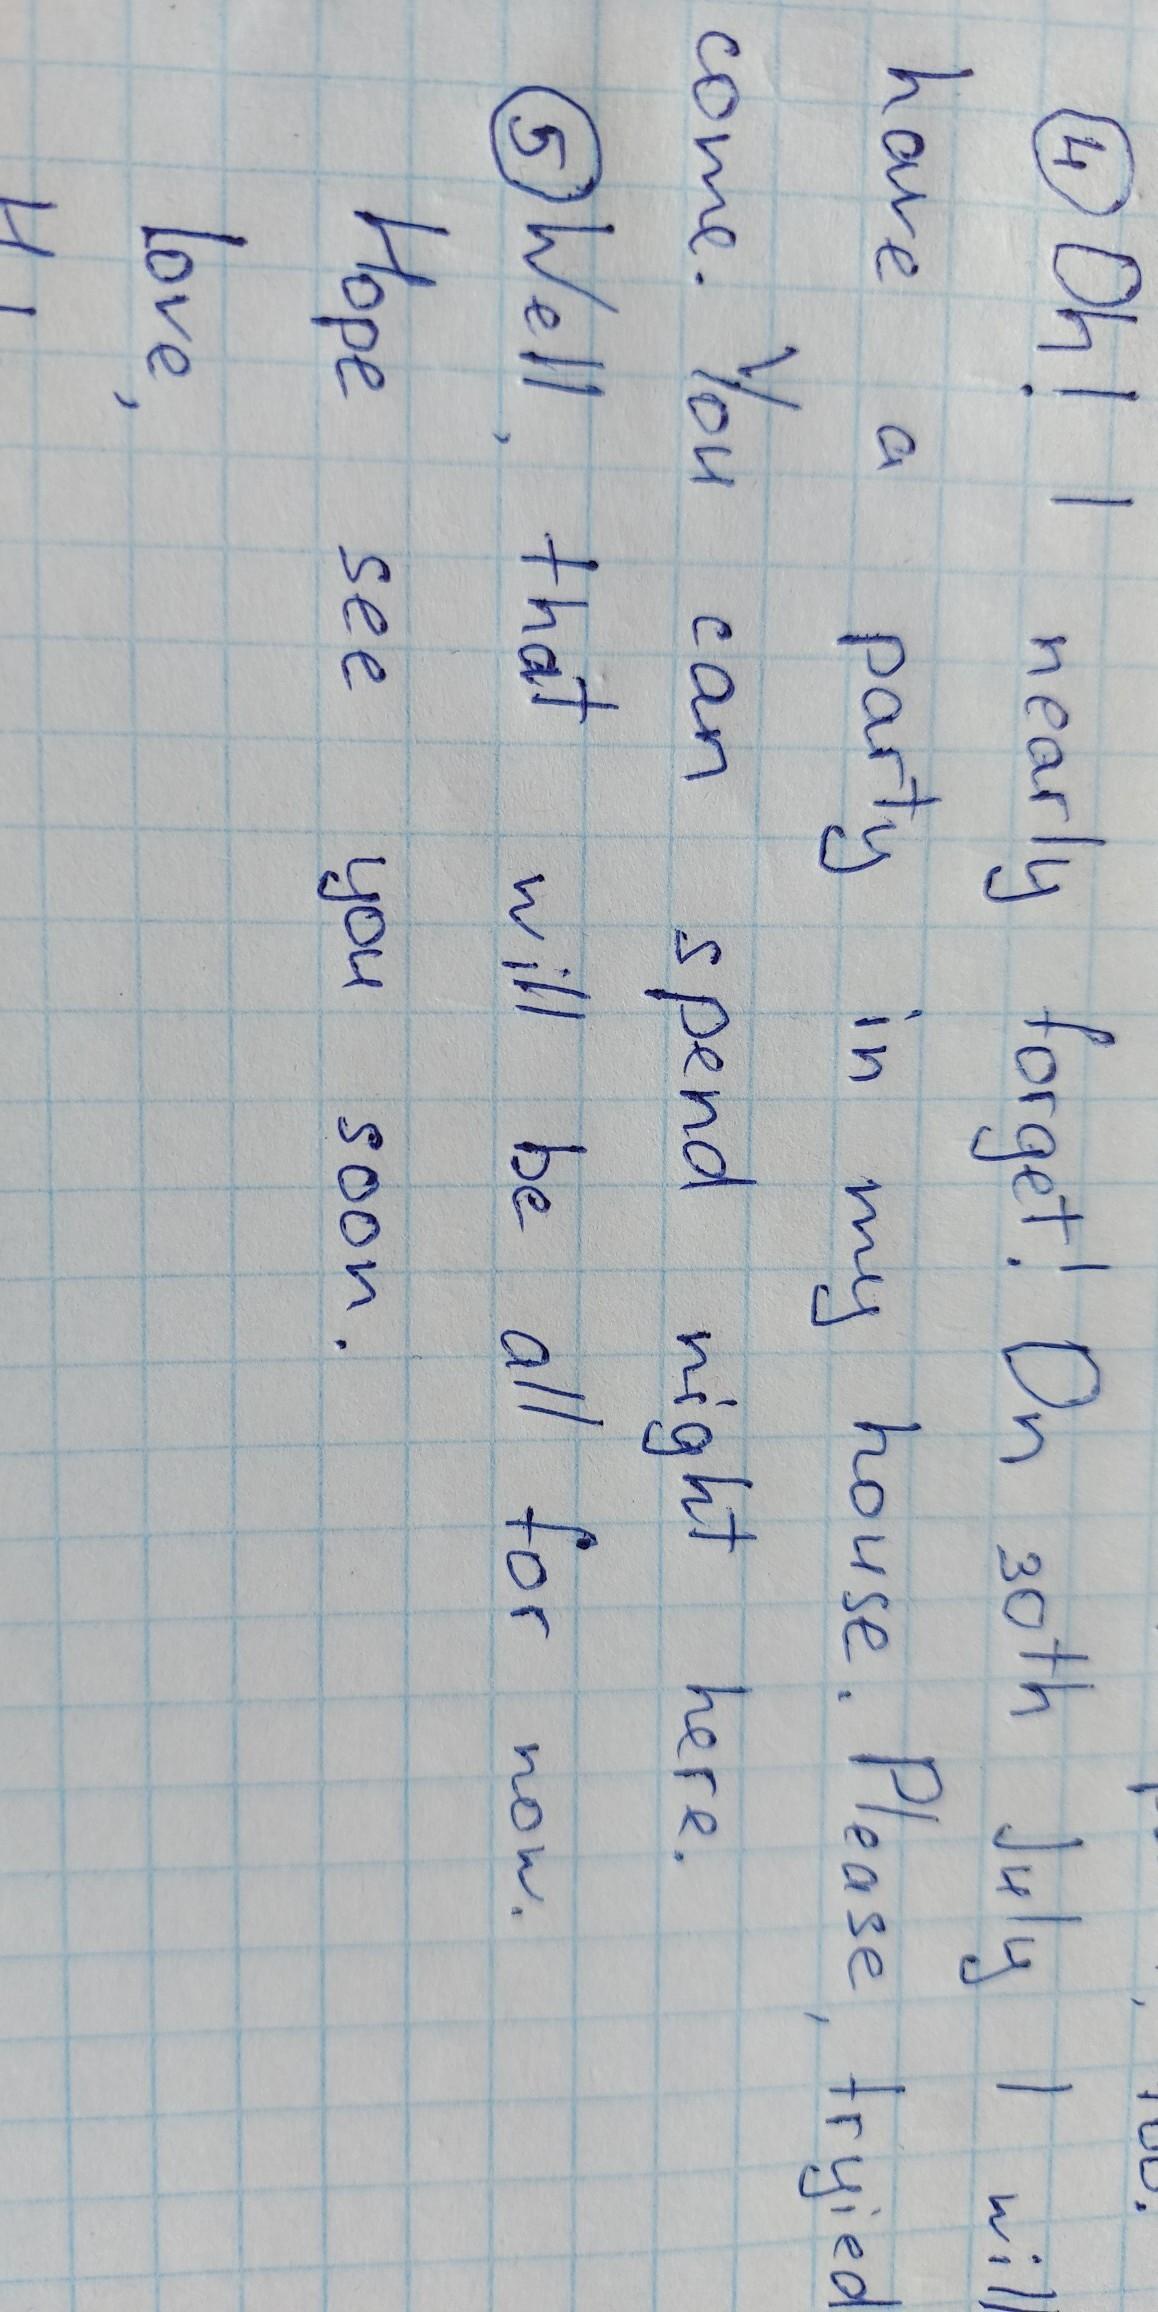 ④ Oh! I nearly forget! On 30th July I will
have a party in my house. Please, tryied
come. You can spend night here.
⑤ Well, that will be all for now.
Hope see you soon.
love,